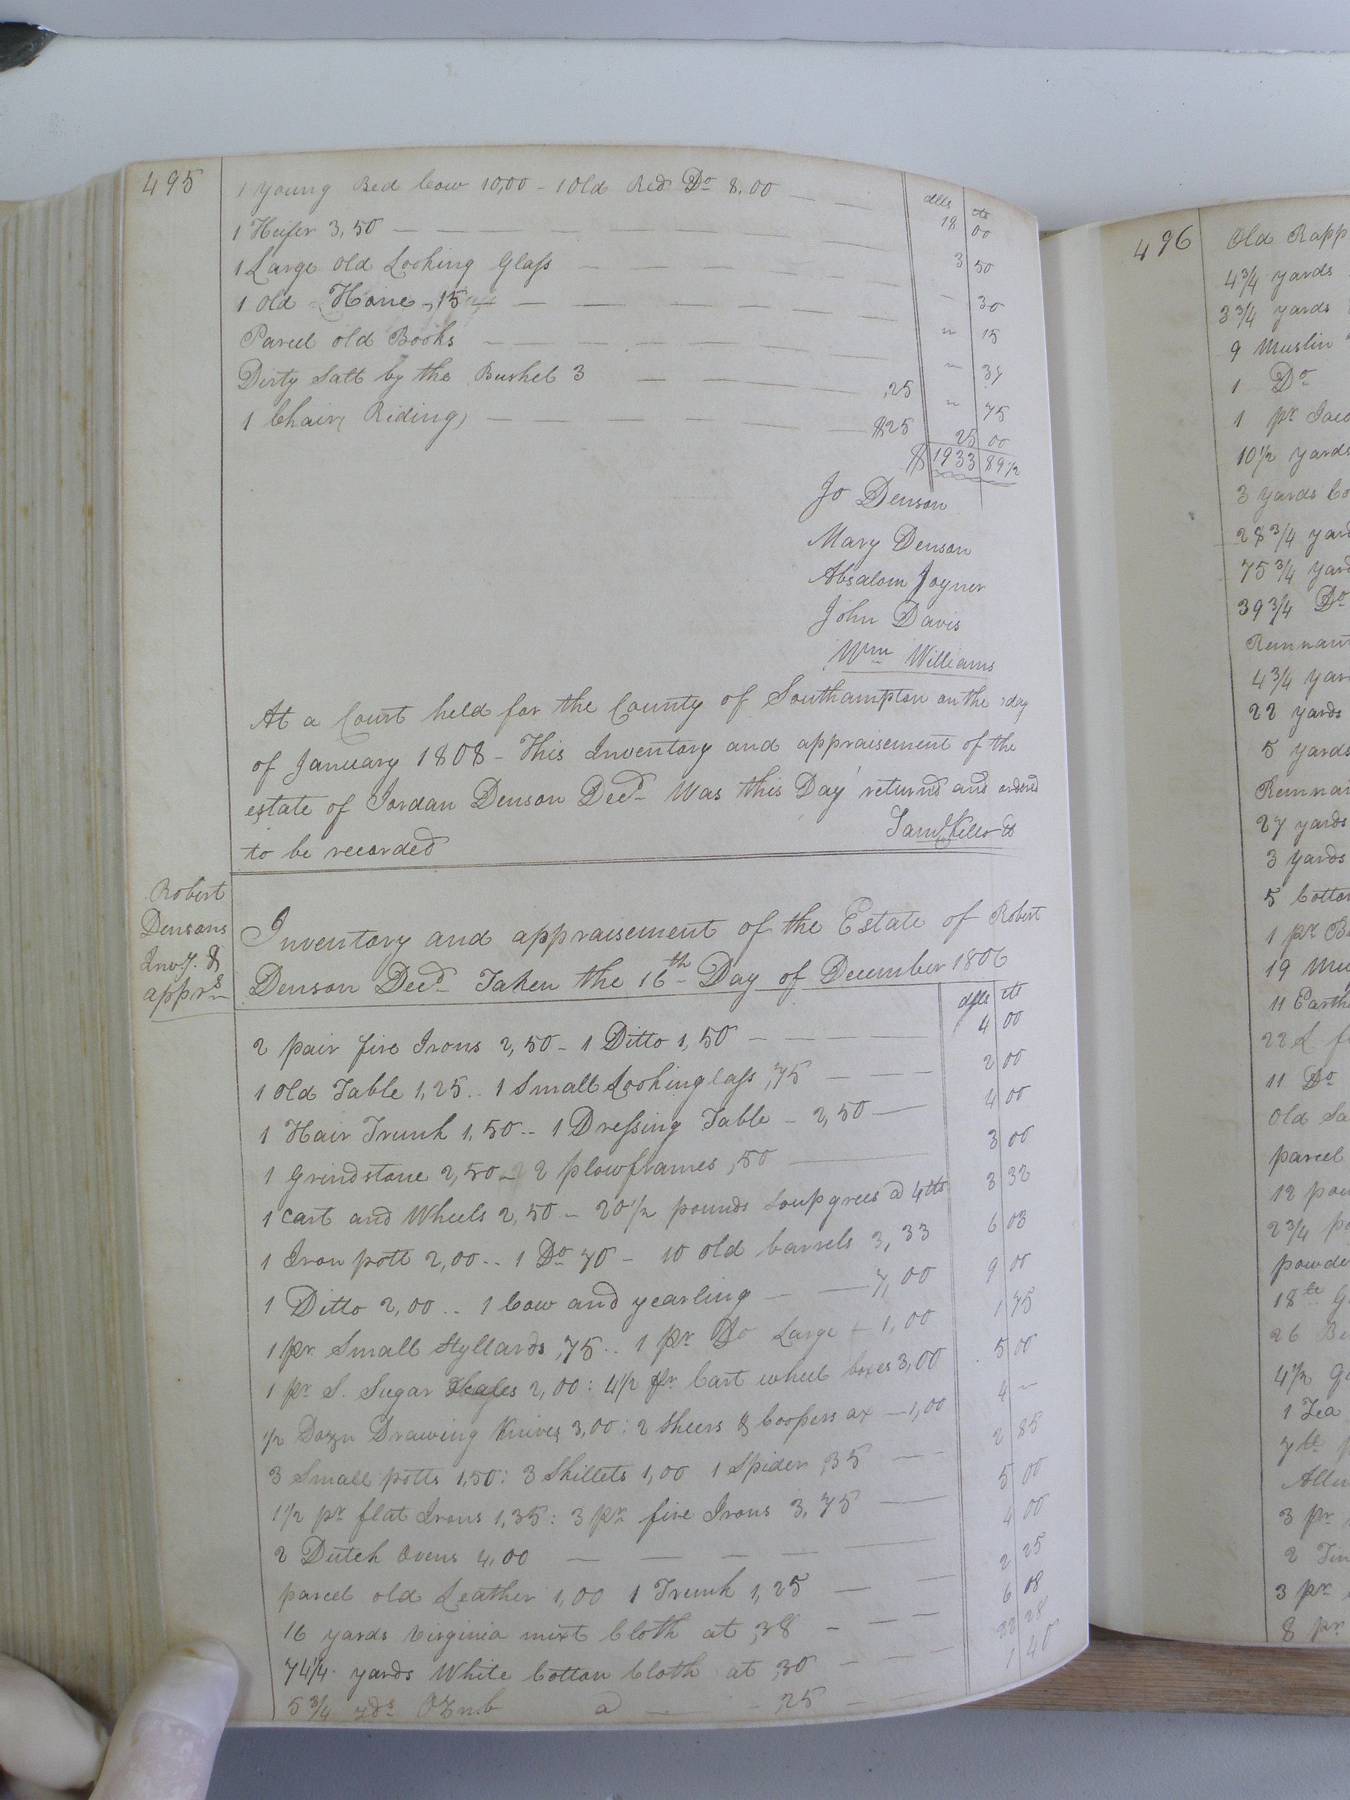 495
1 young Red Cow 10,00 - 1 Old Red Do 8.00 dlls cts
18 00
1 Heifer 3,50 3 50
1 Large old Looking Glass 30
1 old Hone ,15 " 15
Parcel old Books " 37
Dirty Salt by the Bushel 3 ,25 " 75
1 Chair (Riding) $25 25 00
$ 1933 89 1/2
Jo Denson
Mary Denson
Absalom Joyner
John Davis
Wm Williams
At a Court held for the County of Southampton on the day
of January 1808 - This Inventory and appraisement of the
estate of Jordan Denson Decd Was this Day returnd and ordered
to be recorded
Saml Kello
Robert
Densons
Invy. &
apprs
Inventory and appraisement of the Estate of Robert
Denson Decd Taken the 16th Day of December 1806
dlls cts
2 pair fire Irons 2,50 - 1 Ditto 1,50 4 00
1 old Table 1,25 .. 1 Small Lookinglass ,75 2 00
1 Hair Trunk 1,50 .. 1 Dressing Table - 2,50 4 00
1 Grindstone 2,50 - 2 plowframes ,50 3 00
1 Cart and Wheels 2,50 - 20 1/2 pounds Soupgrees a 4cts 3 32
1 Iron pott 2,00 .. 1 Do 70 - 10 old barrels 3,33 6 03
1 Ditto 2,00 .. 1 Cow and yearling 7,00 9 00
1 pr. Small Styllards ,75 .. 1 pr Do Large - 1,00 1 75
1 pr S. Sugar 2,00 : 4 1/2 pr Cart wheel boxes 3,00 5 00
1/2 Dozn Drawing Knives 3,00 : 2 Sheers & Coopers ax - 1,00 4 -
3 Small potts 1,50 : 3 Skillets 1,00 1 Spider ,35 2 85
1 1/2 pr flat Irons 1,35 : 3 pr fire Irons 3,75 5 00
2 Dutch Ovens 4,00 4 00
parcel old Leather 1,00 1 Trunk 1,25 2 25
16 yards Virginia mixt Cloth at ,38 6 08
74 1/4 yards White Cotton Cloth at ,30 22 28
5 3/4 yds OZnb a ,25 1 40
496
Old Rapp
4 3/4 yards
3 3/4 yards
9 Muslin
1 Do
1 pr
10 1/2 yards
3 yards Co
28 3/4 yar
75 3/4 yar
39 3/4 Do
Remnant
4 3/4 yar
22 yards
5 yards
Remnan
27 yards
3 yards
5 Cotton
1 pr B
19 Mu
11 Earth
22 L f
11 Do
Old Sa
parcel
12 pou
2 3/4 po
powder
18
26 Be
4 1/2 G
1 Tea
7 lb p
Allu
3 pr
2 Tin
3 pr
8 pr